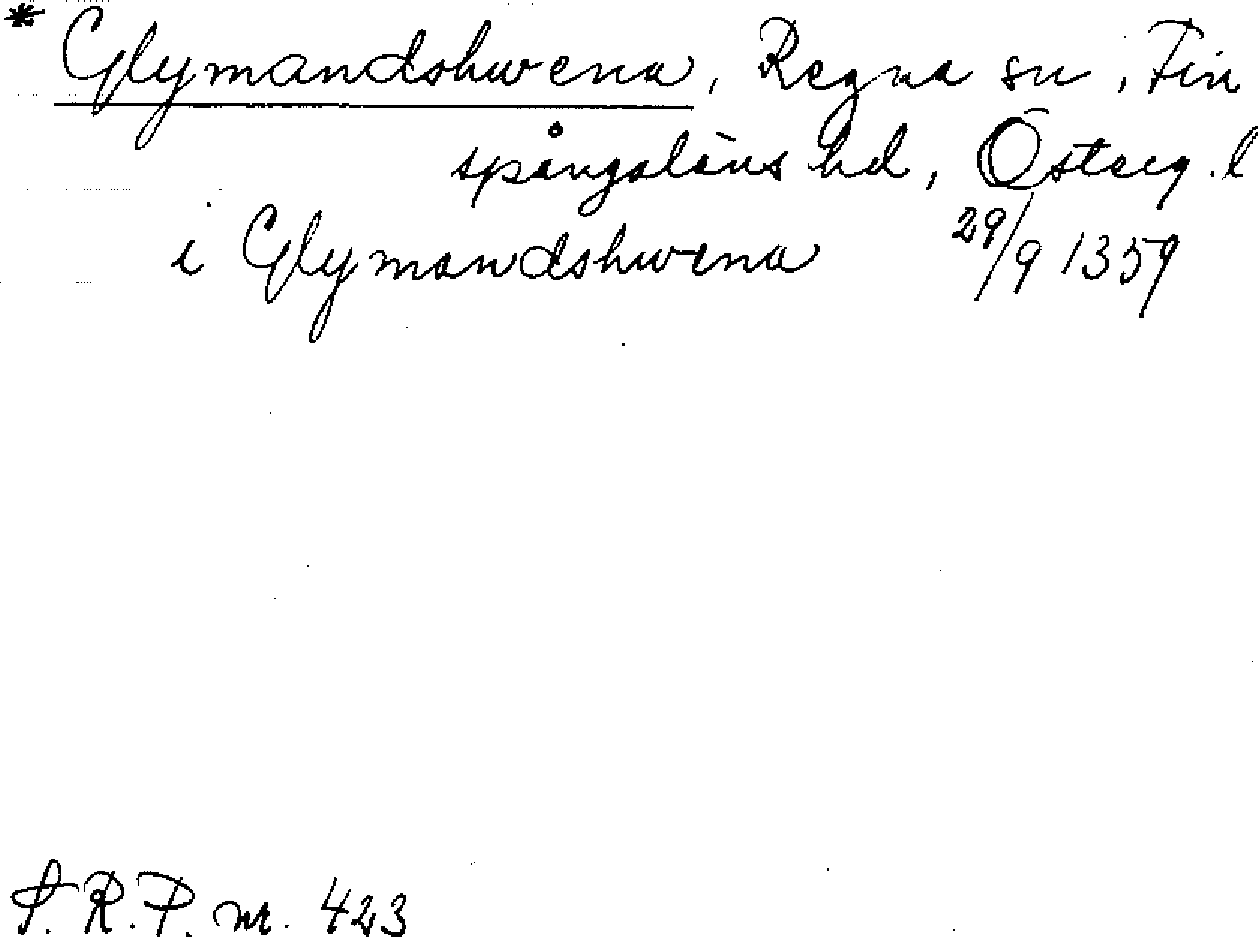 * Glymandshwena, Regna sn, Fin
spångaläns hd, Österg. l
i Glymandshwena 29/9 1359
S. R. P. nr. 423